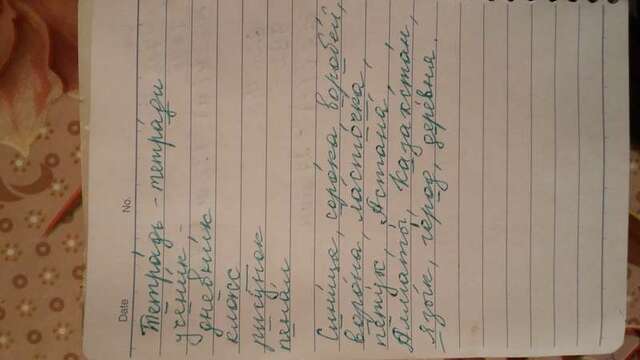 Date No.
Тетрадь - тетради
ученик -
дневник
класс
рисунок
пенал
Синица, сорока воробей,
ворона, ласточка,
петух, Астана,
Алматы Казахстан,
язык, город, деревня.